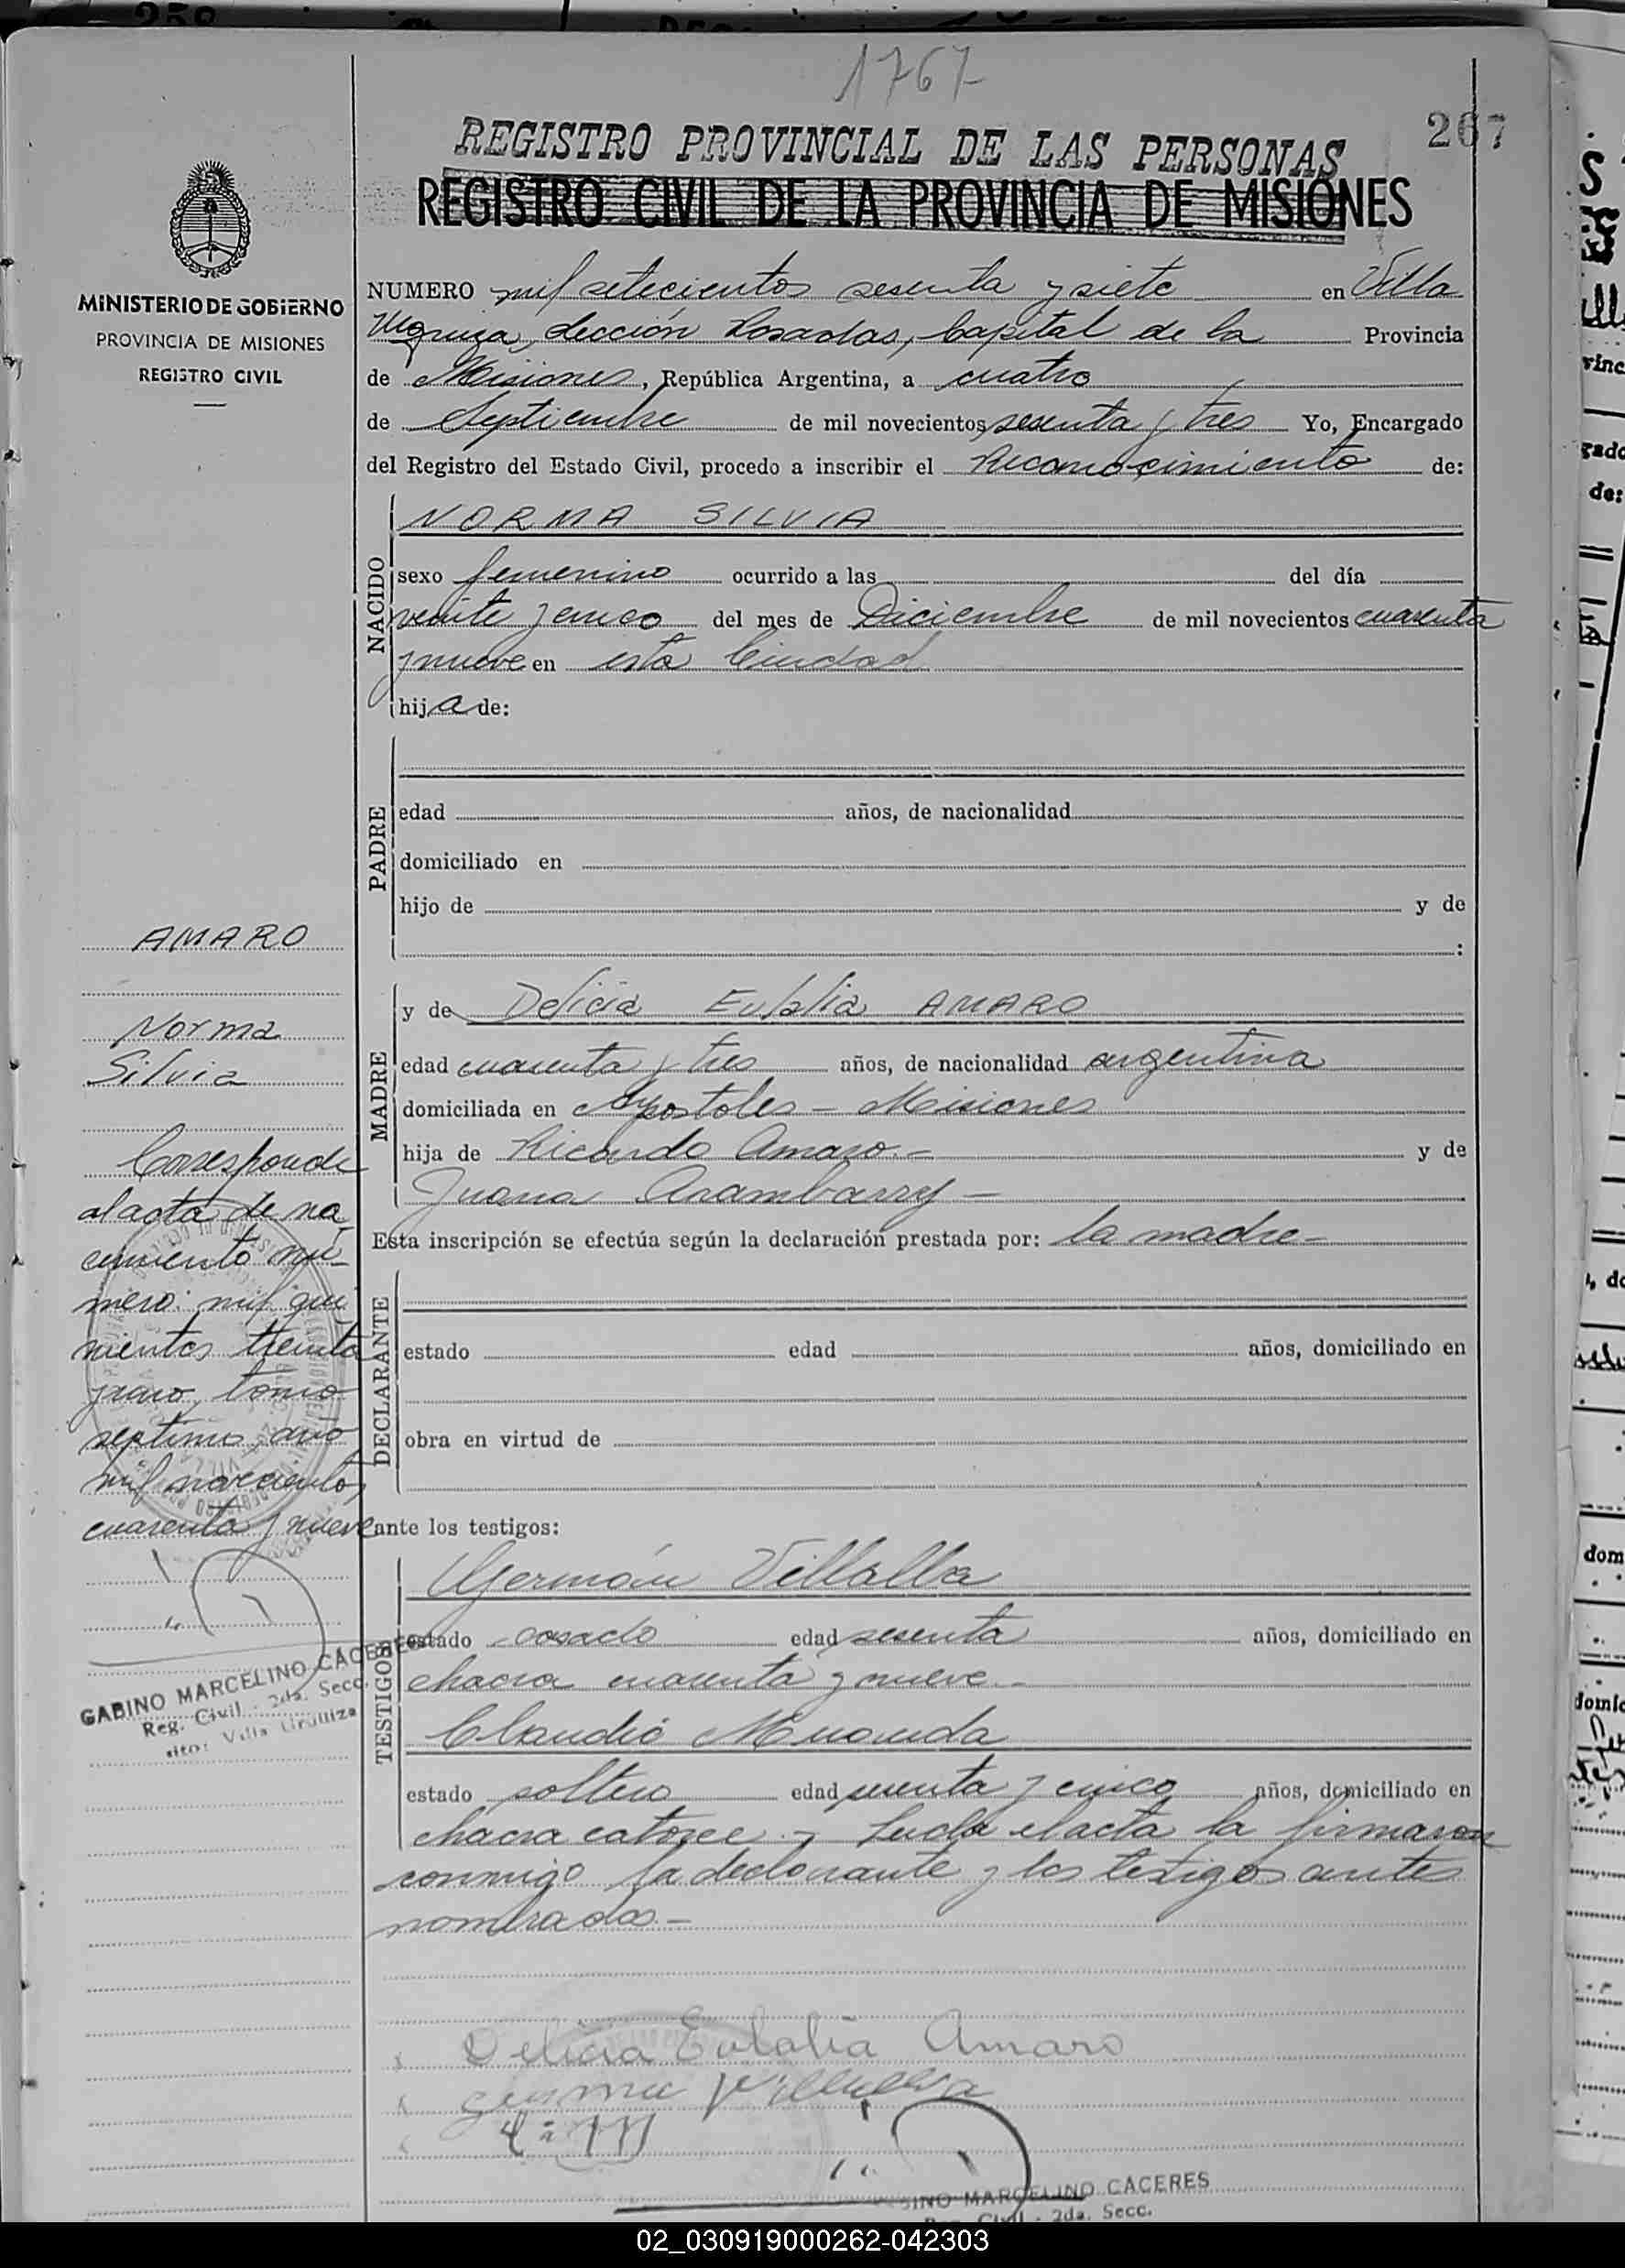 1767
267
REGISTRO PROVINCIAL DE LAS PERSONAS
REGISTRO CIVIL DE LA PROVINCIA DE MISIONES
MINISTERIO DE GOBIERNO
PROVINCIA DE MISIONES
REGISTRO CIVIL
NUMERO mil setecientos sesenta y siete en Villa
Urquiza, Sección Posadas, Capital de la Provincia
de Misiones, República Argentina, a cuatro
de Septiembre de mil novecientos sesenta y tres Yo, Encargado
del Registro del Estado Civil, procedo a inscribir el Reconocimiento de:
NACIDO
NORMA SILVIA
sexo femenino ocurrido a las del día
veinte y cinco del mes de Diciembre de mil novecientos cuarenta
y nueve en esta Ciudad
hija de:
PADRE
edad años, de nacionalidad
domiciliado en
hijo de y de
:
MADRE
y de Delicia Eulalia AMARO
edad cuarenta y tres años, de nacionalidad argentina
domiciliada en Apostoles - Misiones
hija de Ricardo Amaro.- y de
Juana Arambarry -
Esta inscripción se efectúa según la declaración prestada por: la madre-
DECLARANTE
estado edad años, domiciliado en
obra en virtud de
ante los testigos:
TESTIGOS
Germán Villalba
estado casado edad sesenta años, domiciliado en
chacra cuarenta y nueve.-
Claudio Miranda
estado soltero edad sesenta y cinco años, domiciliado en
chacra catorce.- Leida el acta la firmaron
conmigo la declarante y los testigos antes
nombrados.-
AMARO
Norma
Silvia
Corresponde
al acta de na-
cimiento nú-
mero: mil qui
nientos treinta
y uno, tomo
septimo, año
mil novecientos
cuarenta y nueve
GABINO MARCELINO CACERES
Reg. Civil - 2da. Secc.
sito: Villa Urquiza
Delicia Eulalia Amaro
German Villalba
GABINO MARCELINO CACERES
Reg. Civil - 2da. Secc.
02_030919000262-042303